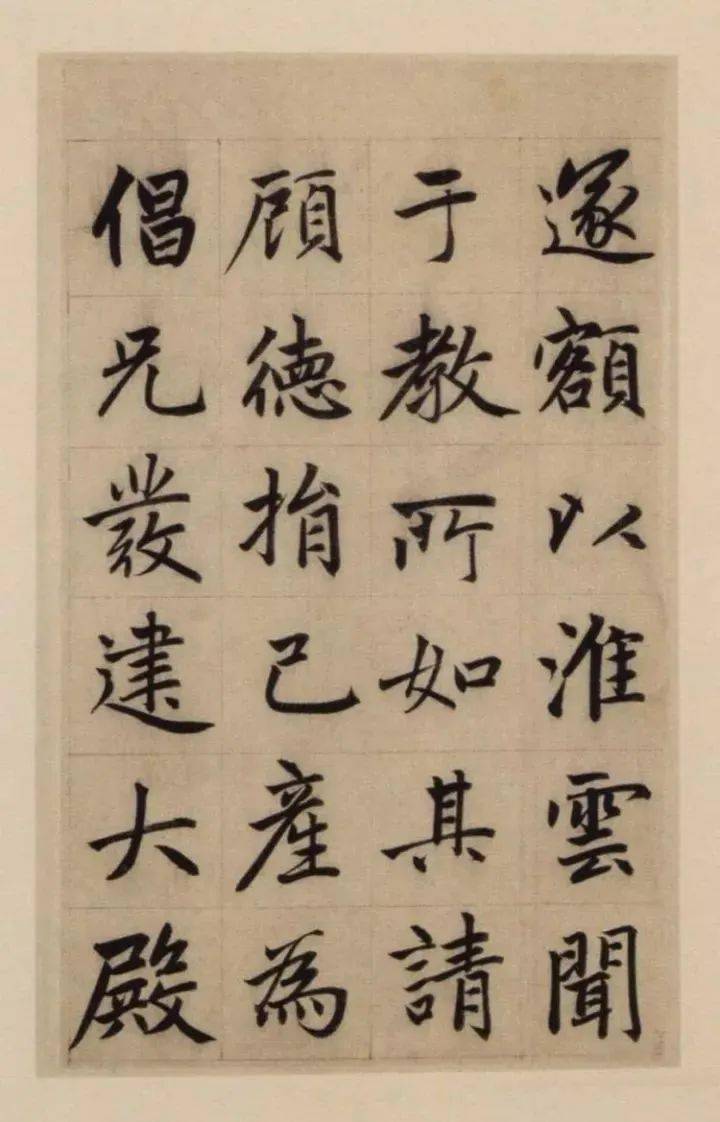 遂額以淮雲聞
于教所如其請
顧德捐己產為
倡兄發建大殿